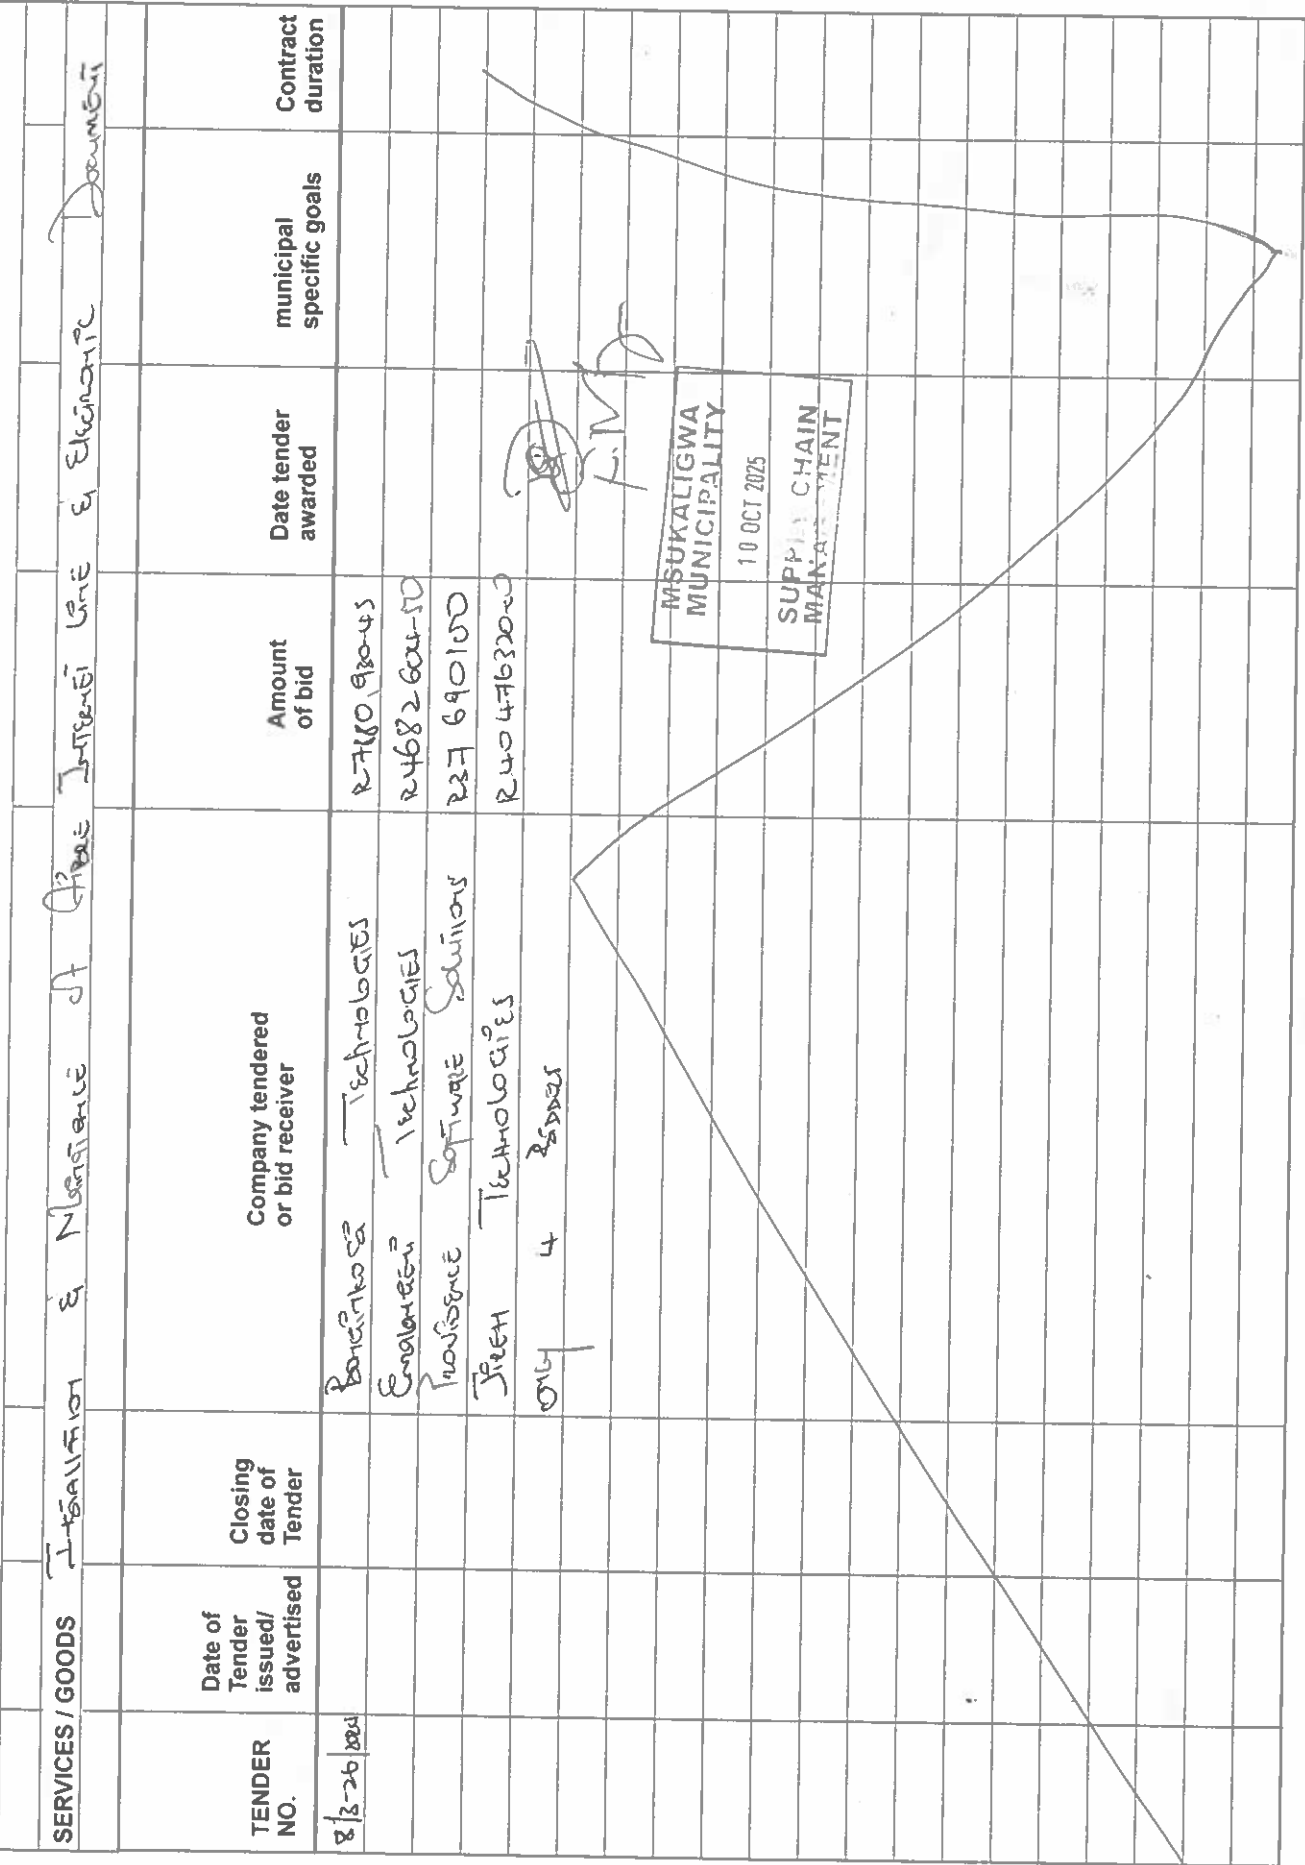 SERVICES / GOODS Installation & Maintanance of Fibre Internet Line & Electronic Document
TENDER NO.
Date of Tender issued/ advertised
Closing date of Tender
Company tendered or bid receiver
Amount of bid
Date tender awarded
municipal specific goals
Contract duration
Technologies
Technologies R4682604-50
Providence Software Solutions R37 690100
Jireh Technologies R40476320-00
only 4 Bidders
MSUKALIGWA
MUNICIPALITY
10 OCT 2025
SUPPLY CHAIN
MANAGEMENT